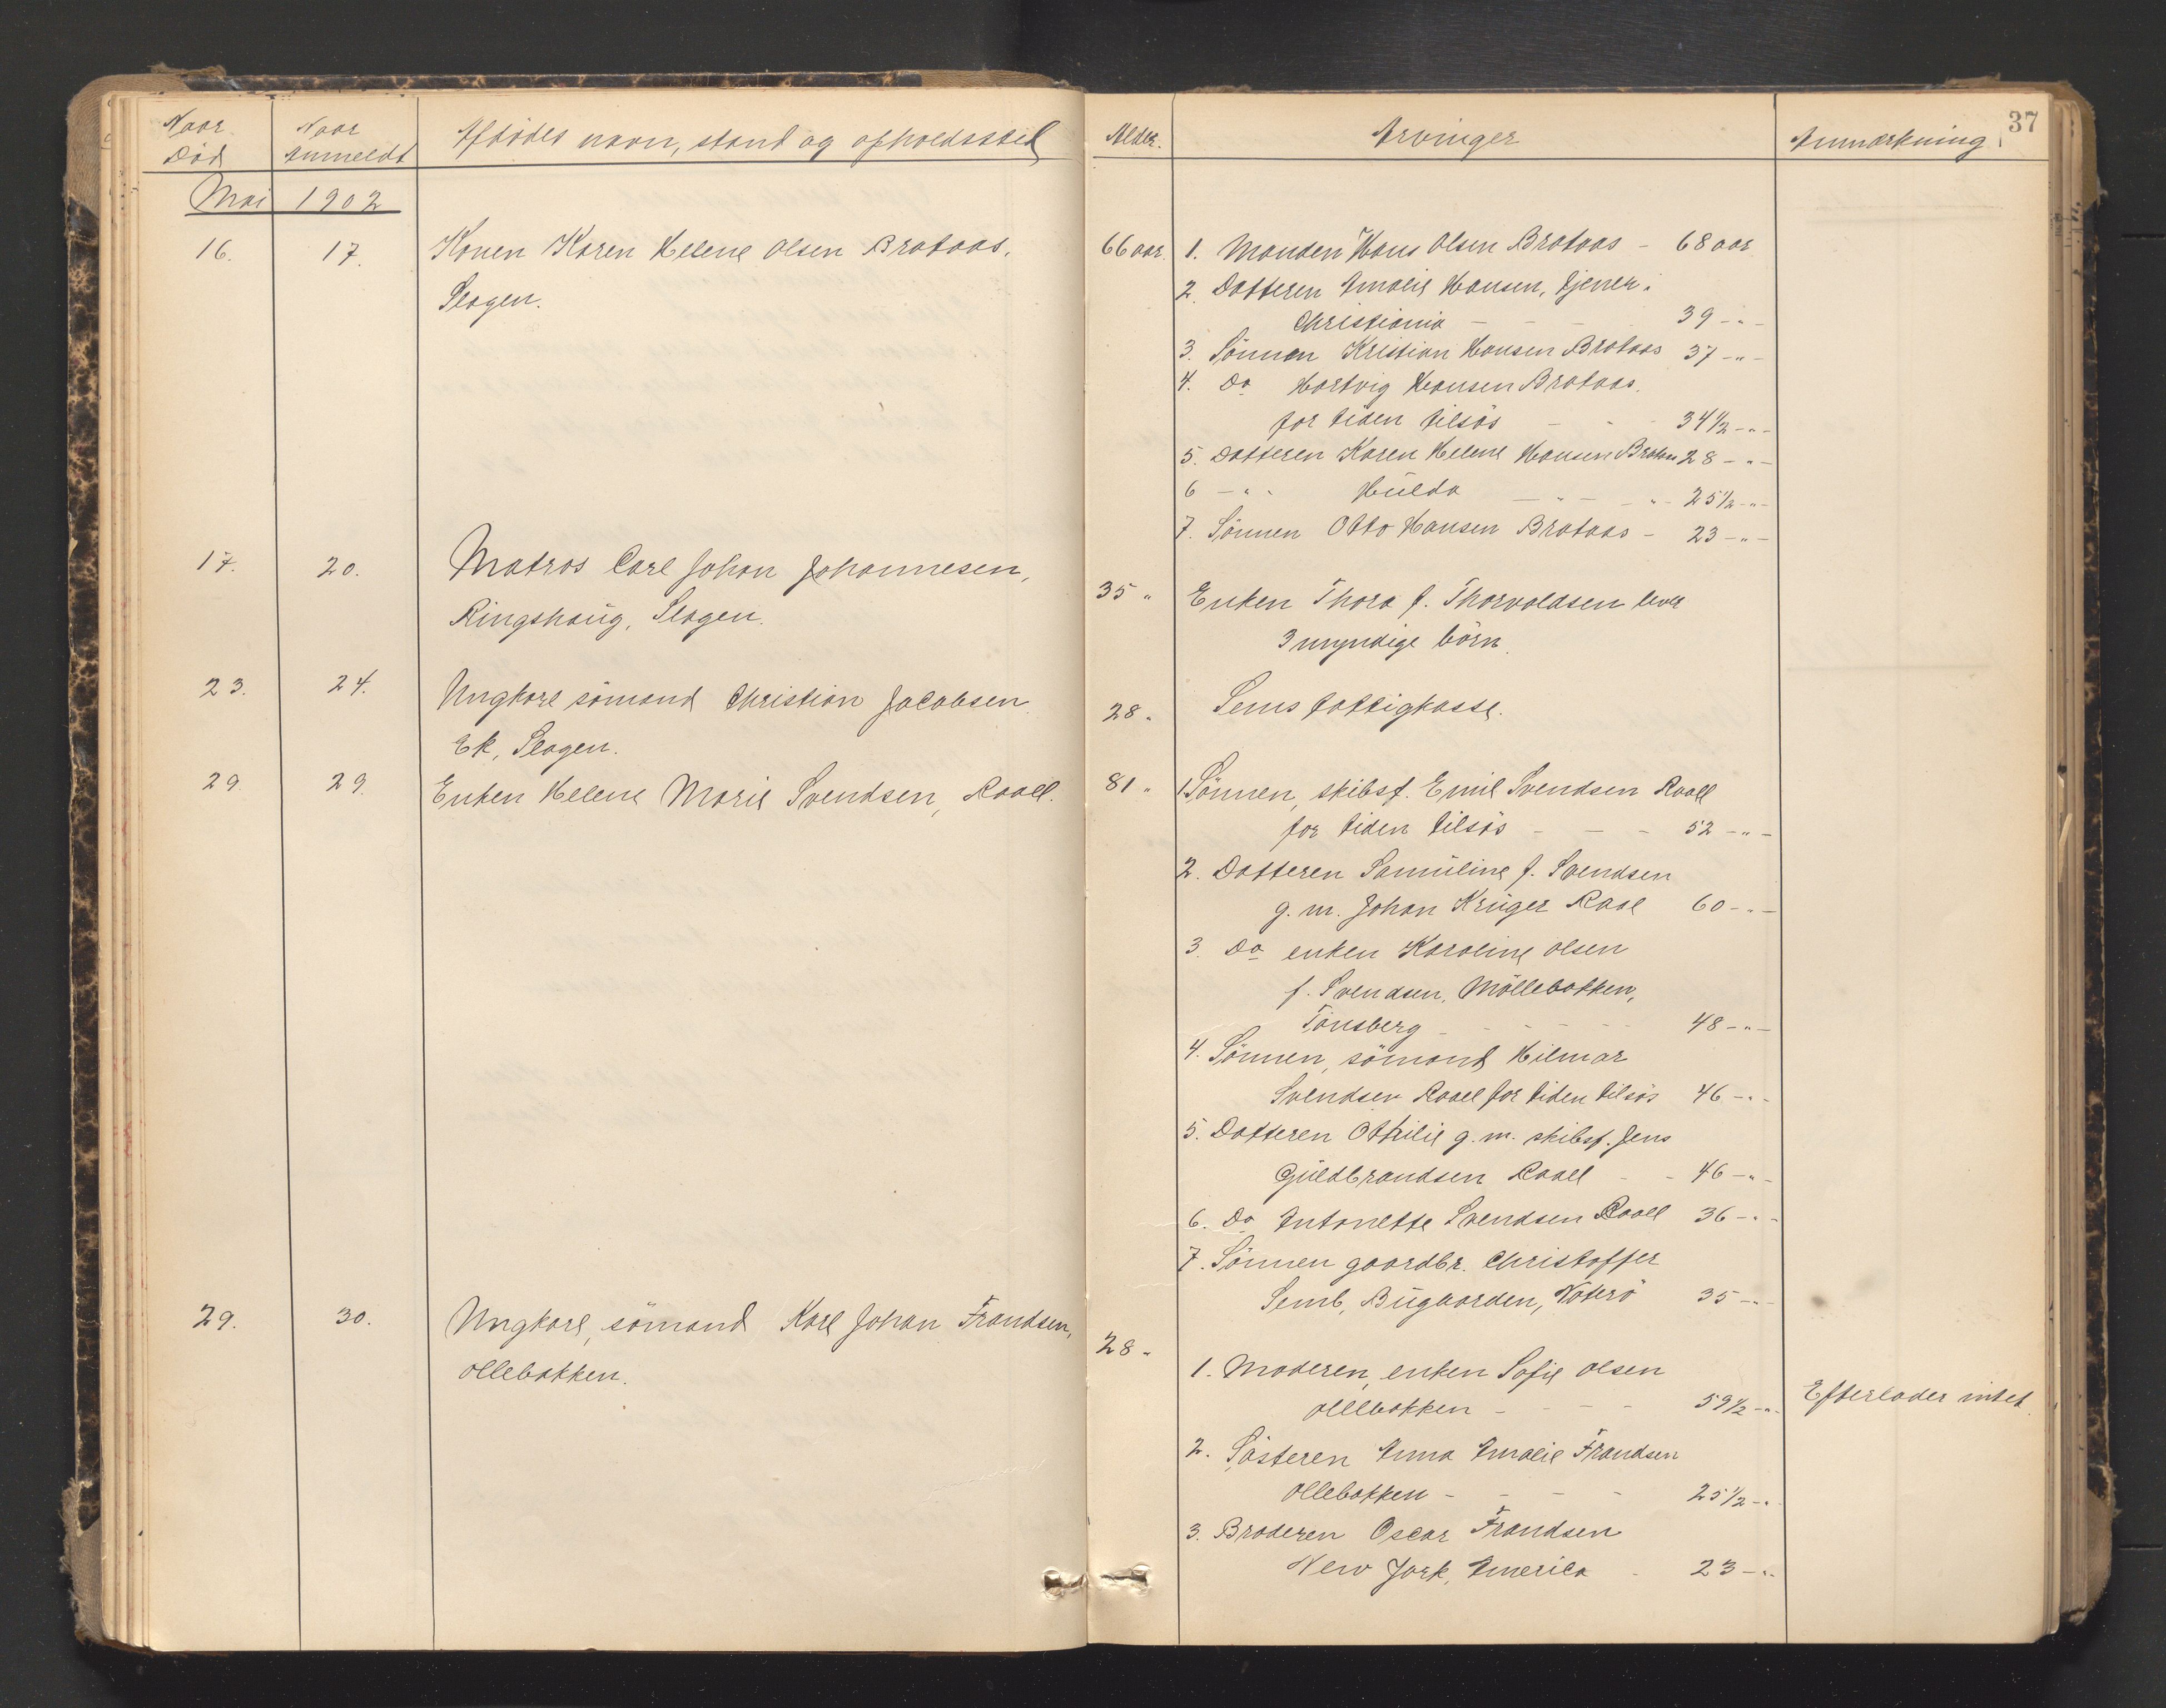 37
Naar Død	Naar Anmeldt	Afdødes navn, stand og opholdssted	Alder.	Arvinger	Anmærkning
Mai 1902
16.	17.	Konen Karen Helene Olsen Brataas,	66 aar.
Slagen.
1. Manden Hans Olsen Brataas – 68 aar
2. Datteren Amalie Hansen, tjener i
Christiania – – 39 – " –
3. Sønnen Kristian Hansen Brataas 37 – " –
4. Do Hartvig Hansen Brataas.
for tiden tilsøs – - 34½ – " –
5. Datteren Karen Helene Hansen Brataas 28 – " –
6 – " - Hulda – " – " - 25½ – " –
7. Sønnen Otto Hansen Brataas – 23 – " –
17.	20.	Matros Carl Johan Johannesen,	35 "
Ringshaug, Slagen.
Enken Thora f. Thorvaldsen lever
3 umyndige børn.
23.	24.	Ungkarl sømand Christian Jacobsen	28 "
Ek, Slagen.
Sems fattigkasse.
29.	29.	Enken Helene Marie Svendsen, Raael.	81 "
1. Sønnen, skibsf. Emil Svendsen Raael
for tiden tilsøs – – – 52 – " –
2. Datteren Samuline f. Svendsen
g. m. Johan Krüger Raael 60 – " –
3 Do enken Karoline Olsen
f. Svendsen, Møllebakken,
Tønsberg – – – – 48 – " –
4. Sønnen, sømand Hilmar
Svendsen Raael for tiden tilsøs 46 – " -
5. Datteren Othilie g. m. skibsf. Jens
Guldbrandsen Raael - - 46 – " -
6. Do Antonette Svendsen Raael 36 – " -
7. Sønnen gaardbr. Christoffer
Semb, Bugaarden, Nøterø 35 – " -
29.	30.	Ungkarl, sømand Karl Johan Frandsen,	28 "
Ollebakken.
1. Moderen, enken Sofie Olsen
Ollebakken – – – – 59½ – " -	Efterlader intet.
2. Søsteren Anna Amalie Frandsen
Ollebakken – – – - 25½ – " -
3. Broderen Oscar Frandsen
New York, Amerika - 23 – " -